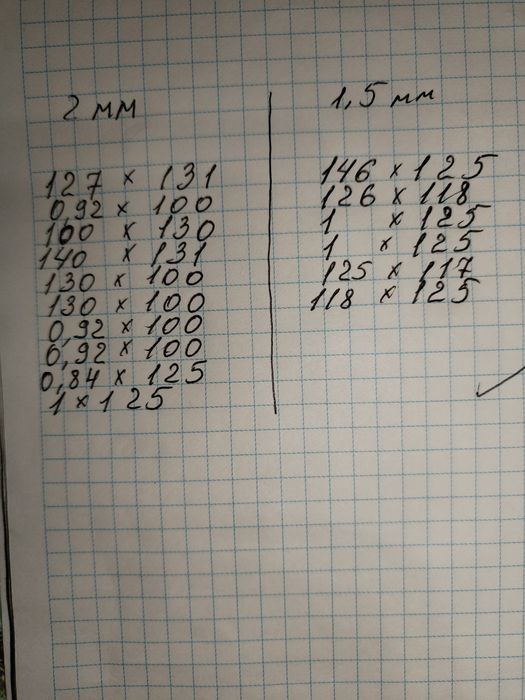 2 мм
127 × 131
0,92 × 100
100 × 130
140 × 131
130 × 100
130 × 100
0,92 × 100
0,92 × 100
0,84 × 125
1 × 125
1,5 мм
146 × 125
126 × 118
1 × 125
1 × 125
125 × 117
118 × 125